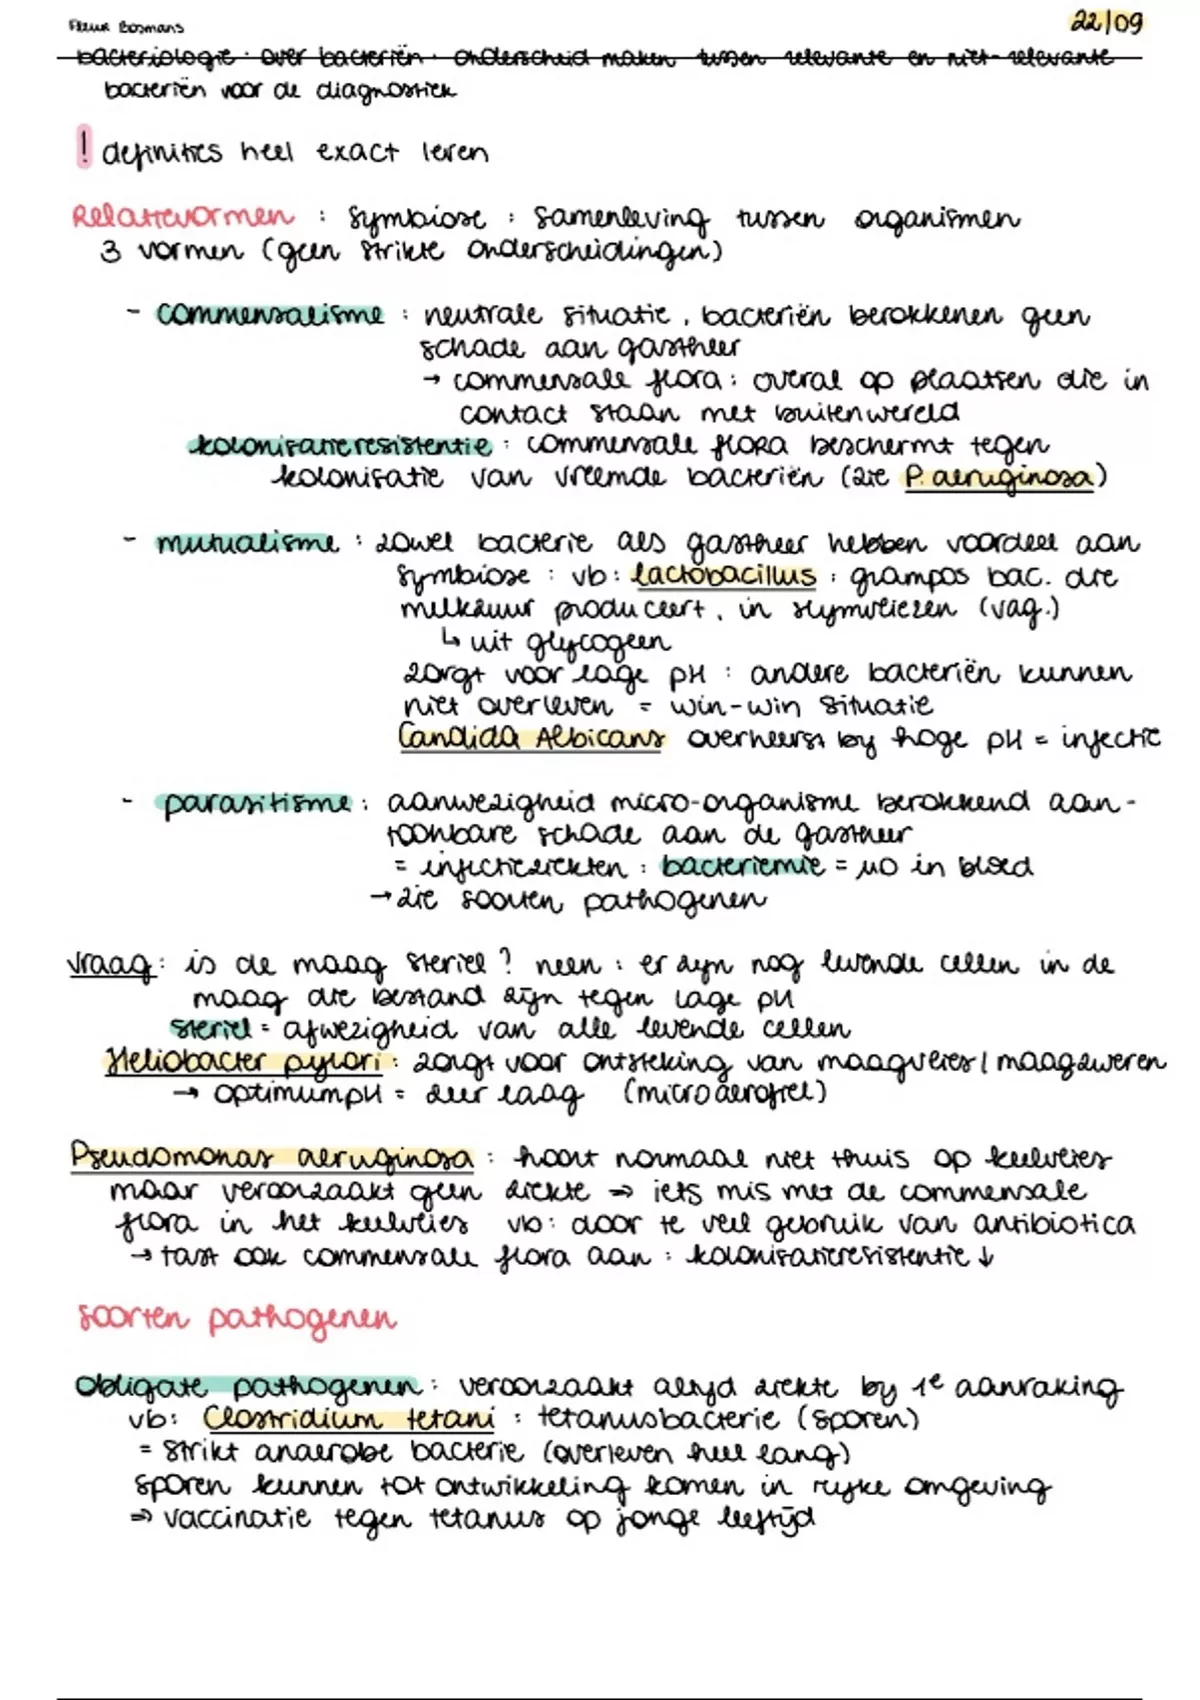 Fleur Bosmans
22/09
bacteriologie : over bacteriën : onderscheid maken tussen relevante en niet-relevante
bacteriën voor de diagnostiek
! definities heel exact leren
Relatievormen : symbiose : samenleving tussen organismen
3 vormen (geen strikte onderscheidingen)
- commensalisme : neutrale situatie, bacteriën berokkenen geen
schade aan gastheer
→ commensale flora : overal op plaatsen die in
contact staan met buitenwereld
kolonisatieresistentie : commensale flora beschermt tegen
kolonisatie van vreemde bacteriën (zie P. aeruginosa)
- mutualisme : zowel bacterie als gastheer hebben voordeel aan
symbiose : vb : lactobacillus : grampos bac. die
melkzuur produceert, in slijmvliezen (vag.)
↳ uit glycogeen
zorgt voor lage pH : andere bacteriën kunnen
niet overleven = win-win situatie
Candida Albicans overheerst bij hoge pH = infectie
- parasitisme : aanwezigheid micro-organisme berokkend aan-
toonbare schade aan de gastheer
= infectieziekten : bacteriemie = MO in bloed
→ zie soorten pathogenen
vraag : is de maag steriel ? neen : er zijn nog levende cellen in de
maag die bestand zijn tegen lage pH
steriel = afwezigheid van alle levende cellen
Heliobacter pylori : zorgt voor ontsteking van maagvlies / maagzweren
→ optimum pH = zeer laag (microaerofiel)
Pseudomonas aeruginosa : hoort normaal niet thuis op keelvlies
maar veroorzaakt geen ziekte ⇒ iets mis met de commensale
flora in het keelvlies vb : door te veel gebruik van antibiotica
→ tast ook commensale flora aan : kolonisatieresistentie ↓
soorten pathogenen
obligate pathogenen : veroorzaakt altijd ziekte bij 1e aanraking
vb : Clostridium tetani : tetanusbacterie (sporen)
= strikt anaerobe bacterie (overleven heel lang)
sporen kunnen tot ontwikkeling komen in rijke omgeving
⇒ vaccinatie tegen tetanus op jonge leeftijd